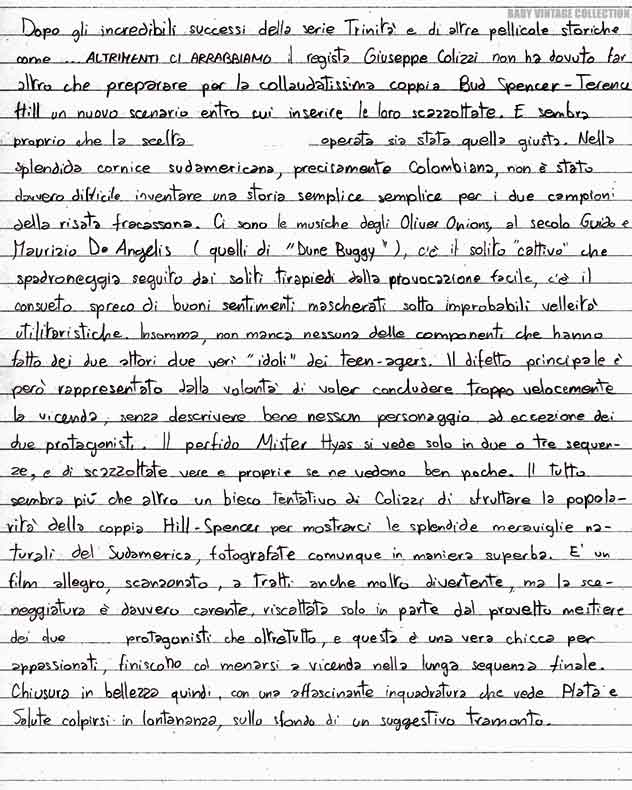 BABY VINTAGE COLLECTION
Dopo gli incredibili successi della serie Trinità e di altre pellicole storiche
come ... ALTRIMENTI CI ARRABBIAMO il regista Giuseppe Colizzi non ha dovuto far
altro che preparare per la collaudatissima coppia Bud Spencer - Terence
Hill un nuovo scenario entro cui inserire le loro scazzottate. E sembra
proprio che la scelta operata sia stata quella giusta. Nella
splendida cornice sudamericana, precisamente Colombiana, non è stato
davvero difficile inventare una storia semplice semplice per i due campioni
della risata fracassona. Ci sono le musiche degli Oliver Onions, al secolo Guido e
Maurizio De Angelis (quelli di "Dune Buggy"), c'è il solito "cattivo" che
spadroneggia seguito dai soliti tirapiedi dalla provocazione facile, c'è il
consueto spreco di buoni sentimenti mascherati sotto improbabili velleità
utilitaristiche. Insomma, non manca nessuna delle componenti che hanno
fatto dei due attori due veri "idoli" dei teen-agers. Il difetto principale è
però rappresentato dalla volontà di voler concludere troppo velocemente
la vicenda, senza descrivere bene nessun personaggio ad eccezione dei
due protagonisti. Il perfido Mister Hyas si vede solo in due o tre sequen-
ze, e di scazzottate vere e proprie se ne vedono ben poche. Il tutto
sembra più che altro un bieco tentativo di Colizzi di sfruttare la popola-
rità della coppia Hill-Spencer per mostrarci le splendide meraviglie na-
turali del Sudamerica, fotografate comunque in maniera superba. E' un
film allegro, scanzonato, a tratti anche molto divertente, ma la sce-
neggiatura è davvero carente, riscattata solo in parte dal provetto mestiere
dei due protagonisti che oltretutto, e questa è una vera chicca per
appassionati, finiscono col menarsi a vicenda nella lunga sequenza finale.
Chiusura in bellezza quindi, con una affascinante inquadratura che vede Plata e
Salute colpirsi in lontananza, sullo sfondo di un suggestivo tramonto.